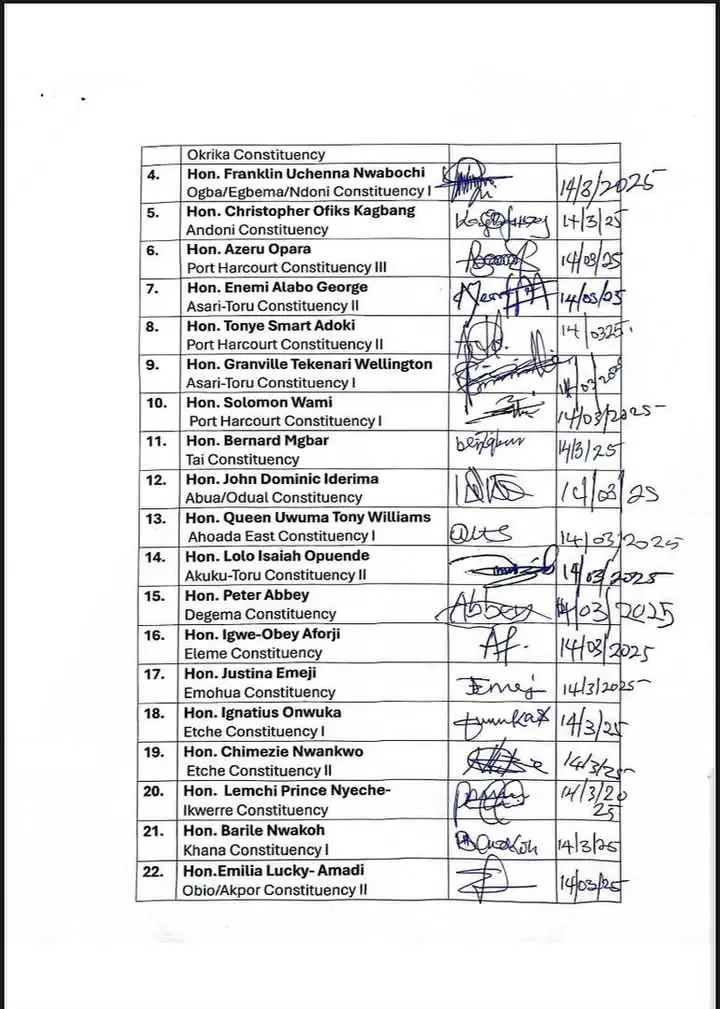 Okrika Constituency
4. Hon. Franklin Uchenna Nwabochi 14/3/2025
Ogba/Egbema/Ndoni Constituency I
5. Hon. Christopher Ofiks Kagbang 14/3/25
Andoni Constituency
6. Hon. Azeru Opara 14/03/25
Port Harcourt Constituency III
7. Hon. Enemi Alabo George
Asari-Toru Constituency II
8. Hon. Tonye Smart Adoki 14/0325
Port Harcourt Constituency II
9. Hon. Granville Tekenari Wellington
Asari-Toru Constituency I
10. Hon. Solomon Wami 14/03/2025
Port Harcourt Constituency I
11. Hon. Bernard Mgbar 14/3/25
Tai Constituency
12. Hon. John Dominic Iderima 14/03/25
Abua/Odual Constituency
13. Hon. Queen Uwuma Tony Williams 14/03/2025
Ahoada East Constituency I
14. Hon. Lolo Isaiah Opuende 14/03/2025
Akuku-Toru Constituency II
15. Hon. Peter Abbey Abbey 14/03/2025
Degema Constituency
16. Hon. Igwe-Obey Aforji Af. 14/03/2025
Eleme Constituency
17. Hon. Justina Emeji Emej 14/3/2025
Emohua Constituency
18. Hon. Ignatius Onwuka 14/3/25
Etche Constituency I
19. Hon. Chimezie Nwankwo 14/3/25
Etche Constituency II
20. Hon. Lemchi Prince Nyeche- 14/3/20
Ikwerre Constituency 25
21. Hon. Barile Nwakoh 14/3/25
Khana Constituency I
22. Hon.Emilia Lucky- Amadi 14/03/25
Obio/Akpor Constituency II